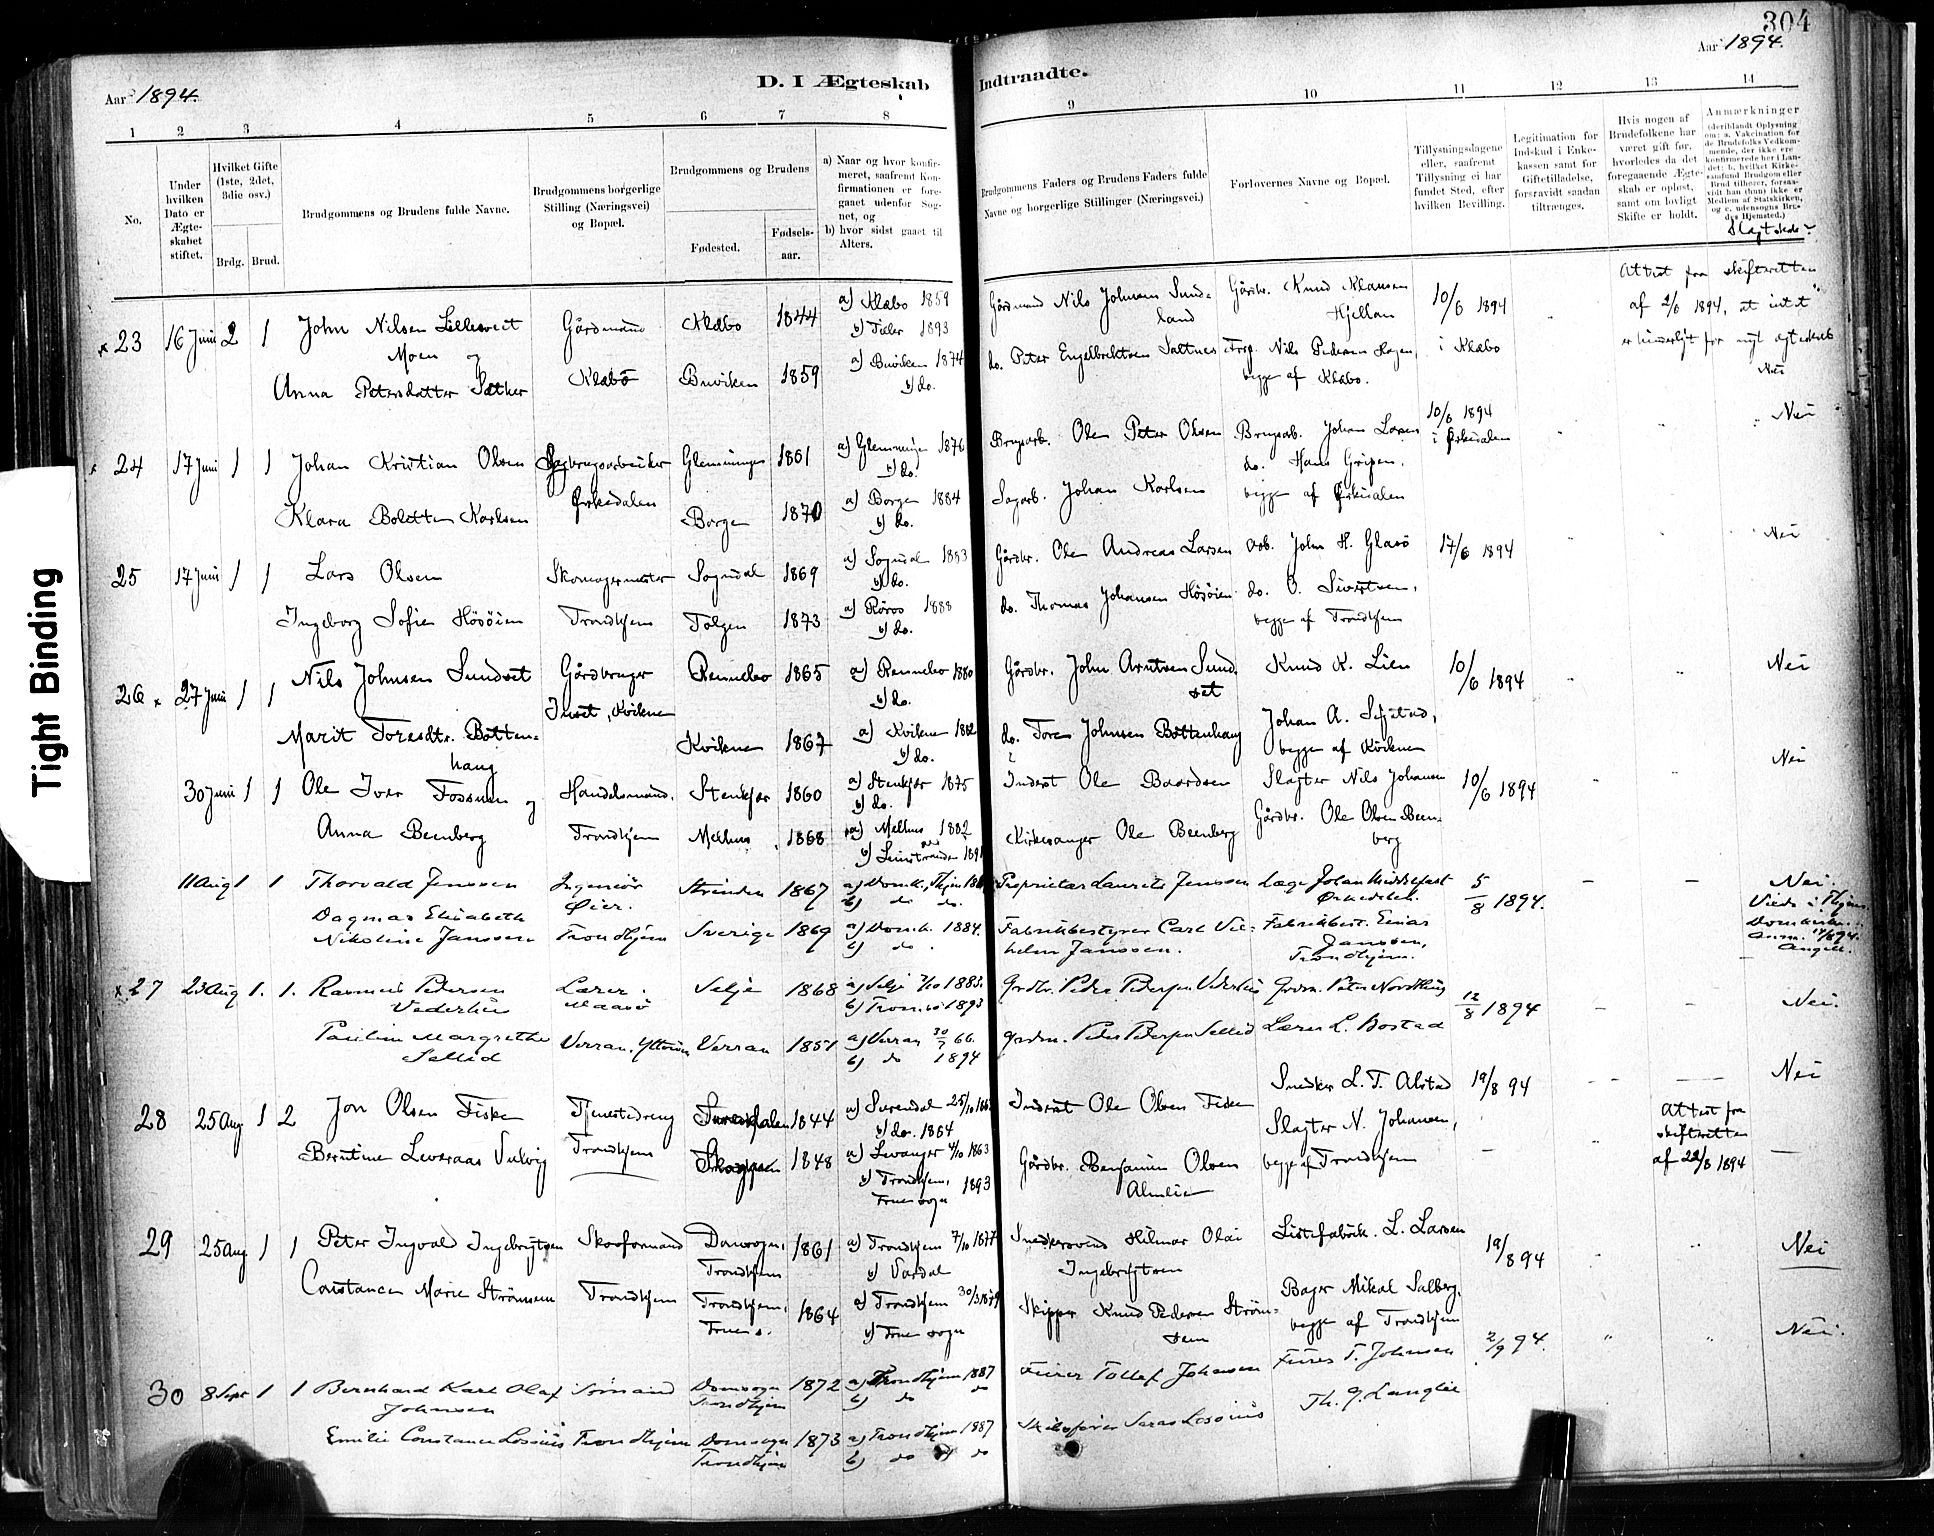 304
Aar 1894.
D. I Ægteskab Indtraadte.
Aar 1894.
1 2 3 4 5 6 7 8 9 10 11 12 13 14
No.
Under hvilken Dato er Ægteskabet stiftet.
Hvilket Gifte (1ste, 2det, 3die osv.)
Brdg. Brud.
Brudgommens og Brudens fulde Navne.
Brudgommens borgerlige Stilling (Næringsvei) og Bopæl.
Brudgommens og Brudens
Fødested.
Fødselsaar.
a) Naar og hvor konfirmeret, saafremt Konfirmationen er foregaaet udenfor Sognet, og
b) hvor sidst gaaet til Alters.
Brudgommens Faders og Brudens Faders fulde Navne og borgerlige Stillinger (Næringsvei.)
Forlovernes Navne og Bopæl.
Tillysningsdagene eller, saafremt Tillysning ei har fundet Sted, efter hvilken Bevilling.
Legitimation for Indskud i Enkekassen samt for Giftetilladelse, forsravidt saadan tiltrænges.
Hvis nogen af Brudefolkene har været gift før, hvorledes da det foregaaende Ægteskab er opløst, samt om lovligt Skifte er holdt.
Anmærkninger
(deriblandt Oplysning om: a. Vakcination for de Brudefolks Vedkommende, der ikke ere konfirmerede her i Landet; b. hvilket Kirkesamfund Brudgom eller Brud tilhører, forsaavidt han (hun) ikke er Medlem af Statskirken, og c. udensogns Brudes Hjemsted.)
Slægtskab?
Tight Binding
x 23 16 Juni 2 1 John Nilsen Lillesveet Moen og Gårdmand Klæbo 1844 a) Klæbo 1859 b) Tiller 1893 Gårdmand Nils Johnsen Sundland Gårdbr. Knud Klausen Kjellan 10/6 1894 i Klæbo
Attest fra skifteretten af 2/6 1894, at intet er hinderligt for nyt ægteskab
Anna Petersdatter Sæther Klæbo Buviken 1859 a) Buviken 1874 b) do. do. Peter Engelbrektsen Saltnes Nils Pedersen Hagen, begge af Klæbo. Nei
x 24 17 Juni 1 1 Johan Kristian Olsen Sagbrugsarbeider Glemminge 1861 a) Glemminge 1876 b) do. Brugsarb. Ole Peter Olsen Brugsarb. Johan Larsen do. Hans Gripen. 10/6 1894 i Ørkedalen Nei
Klara Bolette Karlsen Ørkedalen Borge 1870 a) Borge 1884 b) do. Sagarb. Johan Karlsen begge af Ørkedalen
25 17 Juni 1 1 Lars Olsen Skomagermester Sogndal 1869 a) Sogndal 1883 b) do. Gårdbr. Ole Andreas Larsen Arb. John H. Glasø 17/6 1894 Nei
Ingeborg Sofie Hösöien Trondhjem Tolgen 1873 a) Röros 1888 b) do. do. Thomas Johansen Hösöien do. O. Sivertsen, begge af Trondhjem
26 x 27 Juni 1 1 Nils Johnsen Sundset Gårdbruger Rennebo 1865 a) Rennebo 1880 b) do. Gårdbr. John Arntsen Sundset Knud K. Lien 10/6 1894 Nei
Marit Toresdtr. Böttenhaug Inset, Kvikne Kvikne 1867 a) Kvikne 1882 b) do. do. Tore Johnsen Böttenhaug Johan A. begge af Kvikne
30 Juni 1 1 Ole Iver Fossum og Handelsmand. Stenkjær 1860 a) Stenkjær 1875 b) do. Inderst Ole Baardsen Slagter Nils Johansen 10/6 1894 Nei
Anna Beenberg Trondhjem Melhus 1868 a) Melhus 1882 b) Leinstranden 1891 Kirkesanger Ole Beenberg Gårdbr. Ole Olsen Beenberg
11 Aug 1 1 Thorvald Jenssen Ingeniör Øier. Strinden 1867 a) Domk. Thjem b) do do. Proprietær Laurits Jenssen Læge Johan Middelfart Ørkedalen. 5/8 1894. Nei.
Dagmar Elisabeth Nikoline Janssen Trondhjem Sverige 1869 a) Domk. 1884. b) do. Fabrikbestyrer Carl Vilhelm Janssen. Fabrikbest. Einar Janssen, Trondhjem. Viede i Thjems Domkirke. Anm. 17/8 94.
x 27 23 Aug 1. 1. Rasmus Pedersen Vederhus Lærer. Maasö Selje 1868 a) Selje 7/10 1883. b) Tromsö 1893 Grdbr. Peder Pedersen Vederhus Grdm. Peter Nordthug 12/8 1894 Nei.
Pauline Margrethe Sellid Verran. Ytterøen Verran 1851 a) Verran 30/7 66. b) do 1894 Grdm. Peder Pedersen Sellid Lærer L. Bostad
28 25 Aug 1 2 Jon Olsen Fiske Tjenestedreng Surendalen 1844 a) Surendal 25/10 b) do. 1864 Inderst Ole Olsen Fiske Snedker L. T. Alstad 19/8 94 Nei
Berntine Leveraas Trondhjem Skogn 1848 a) Levanger 4/10 1863 b) Trondhjem, Frue sogn 1893 Gårdbr. Benjamin Olsen Almlie Slagter N. Johansen, begge af Trondhjem
Attest fra skifteretten af 22/8 1894
29 25 Aug 1 1 Peter Ingvald Ingebrigtsen Skoformand Domsogn, Trondhjem 1861 a) Trondhjem 7/10 1877 b) Vardal Snedkersvend Hilmar Olai Ingebrigtsen Listefabrik. L. Larsen 19/8 94 Nei
Constance Marie Strömsem Trondhjem Trondhjem, Frue s. 1864 a) Trondhjem 30/3 1879 b) Frue sogn Skipper Knud Pedersen Strömsem Bager Mikal Salberg, begge af Trondhjem
30 8 Sept 1 1 Bernhard Karl Olaf Johnsen Sömand Domsogn Trondhjem 1872 a) Trondhjem 1887 b) do do Furer Tollef Johnsen Furer T. Johnsen 2/9 94. Nei.
Emilie Constance Lossius Trondhjem Domsogn Trondhjem 1873 a) Trondhjem 1887 b) do do Skibsfører Lossius Th. J. Langlie